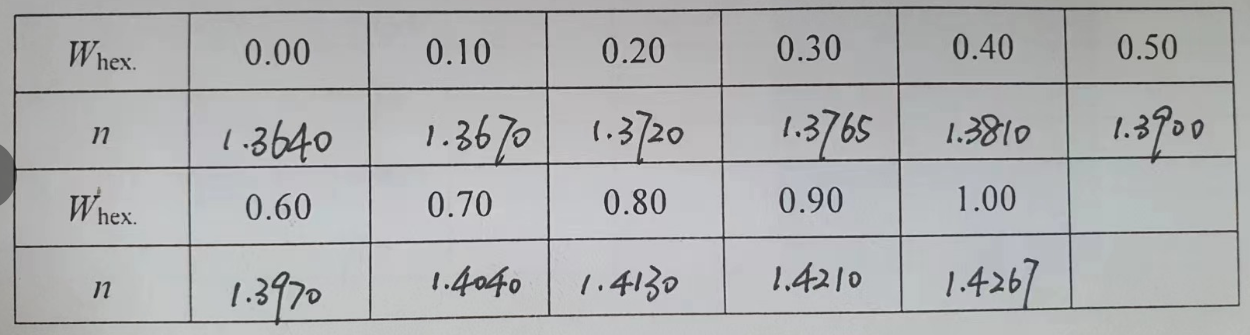 W hex. 0.00 0.10 0.20 0.30 0.40 0.50
n 1.3640 1.3670 1.3720 1.3765 1.3810 1.3900
W hex. 0.60 0.70 0.80 0.90 1.00
n 1.3970 1.4040 1.4130 1.4210 1.4267